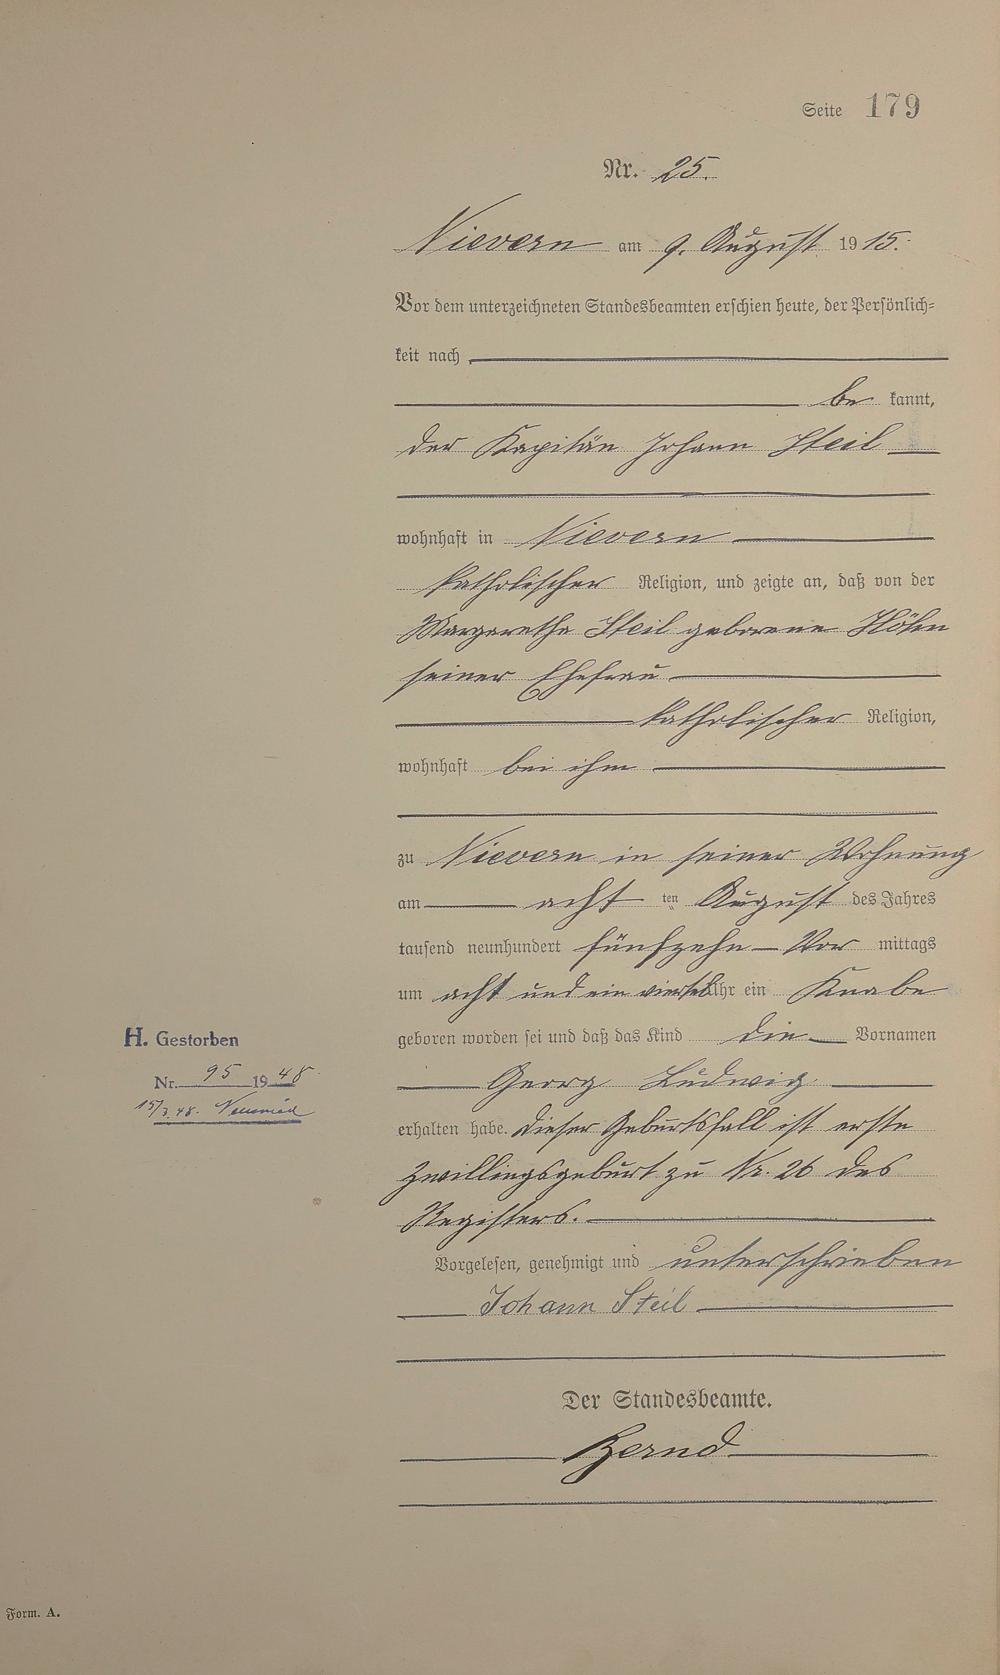 Seite 179
Nr. 25.
Nievern am 9. August 1915.
Vor dem unterzeichneten Standesbeamten erschien heute, der Persönlich=
keit nach
be kannt,
der Kapitän Johann Steil
wohnhaft in Nievern
katholischer Religion, und zeigte an, daß von der
Margarethe Steil geborene Höhn
seiner Ehefrau
katholischer Religion,
wohnhaft bei ihm
zu Nievern in seiner Wohnung
am acht ten August des Jahres
tausend neunhundert fünfzehn Vor mittags
um acht und ein viertel Uhr ein Knabe
geboren worden sei und daß das Kind die Vornamen
Georg Ludwig
erhalten habe. Dieser Geburtsfall ist erste
Zwillingsgeburt zu Nr. 26 des
Registers.
Vorgelesen, genehmigt und unterschrieben
Johann Steil
Der Standesbeamte.
H. Gestorben
Nr. 95 1948
15/3.48. Neuwied
Form. A.